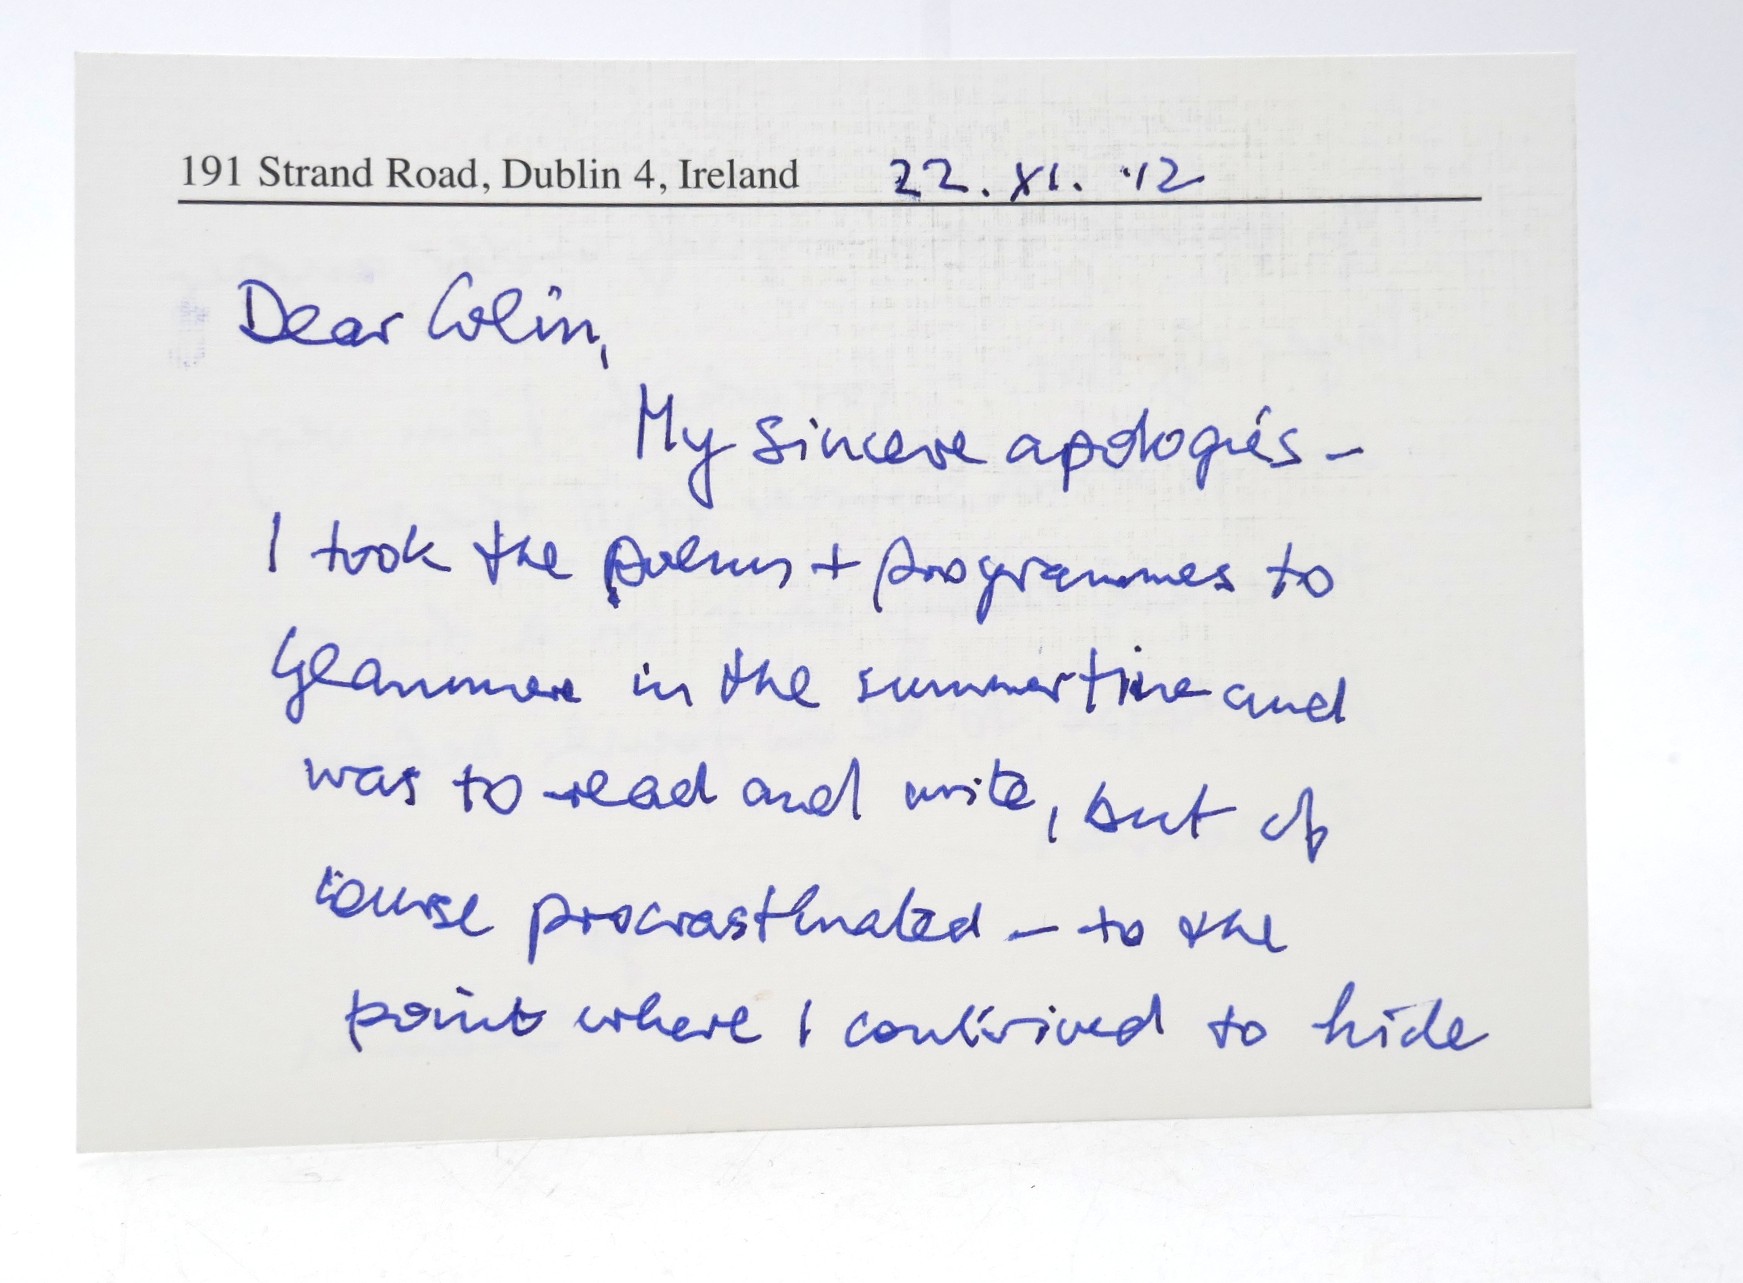 191 Strand Road, Dublin 4, Ireland 22. XI. '12
Dear Colin,
My sincere apologies –
I took the poems + programmes to
Glanmore in the summertime and
was to read and write, but of
course procrastinated – to the
point where I contrived to hide